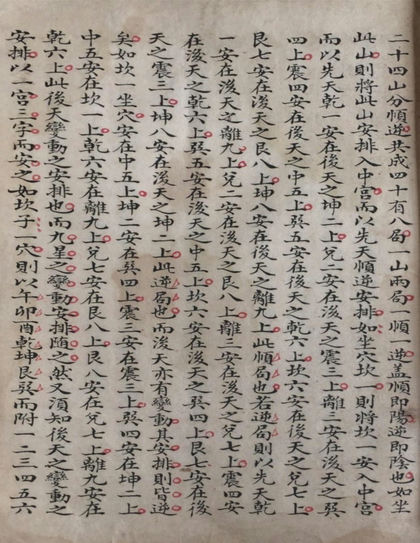 二十四山分順逆共成四十有八局　山兩局一順　逆蓋順即陽逆即陰也如坐
此山則將此山安排入中宮而以先天順逆安排如坐穴坎一則將坎一安入中宮
而以先天乾一安在後天之坤二上兌二安在後天之震三上離三安在後天之巽
四上震四安在後天之中五上巽五安在後天之乾六上坎六安在後天之兌七上
艮七安在後天之艮八上坤八安在後天之離九上此順局也若逆局則以先天乾
一安在後天之離九上兌二安在後天之艮八上離三安在後天之兌七上震四安
在後天之乾六上巽五安在後天之中五上坎六安在後天之巽四上艮七安在後
天之震三上坤八安在後天之坤二上此逆局也而後天亦有變動其安排則皆逆
矣如坎一坐穴安在中五上坤二安在巽四上震三安在震三上巽四安在坤二上
中五安在坎一上乾六安在離九上兌七安在艮八上艮八安在兌七上離九安在
乾六上此後天變動之安排也而九星之變動安排隨之然又須知後天之變動之
安排以一宮三字而安之如坎子　穴則以午卯酉乾坤艮巽而附一二三四五六